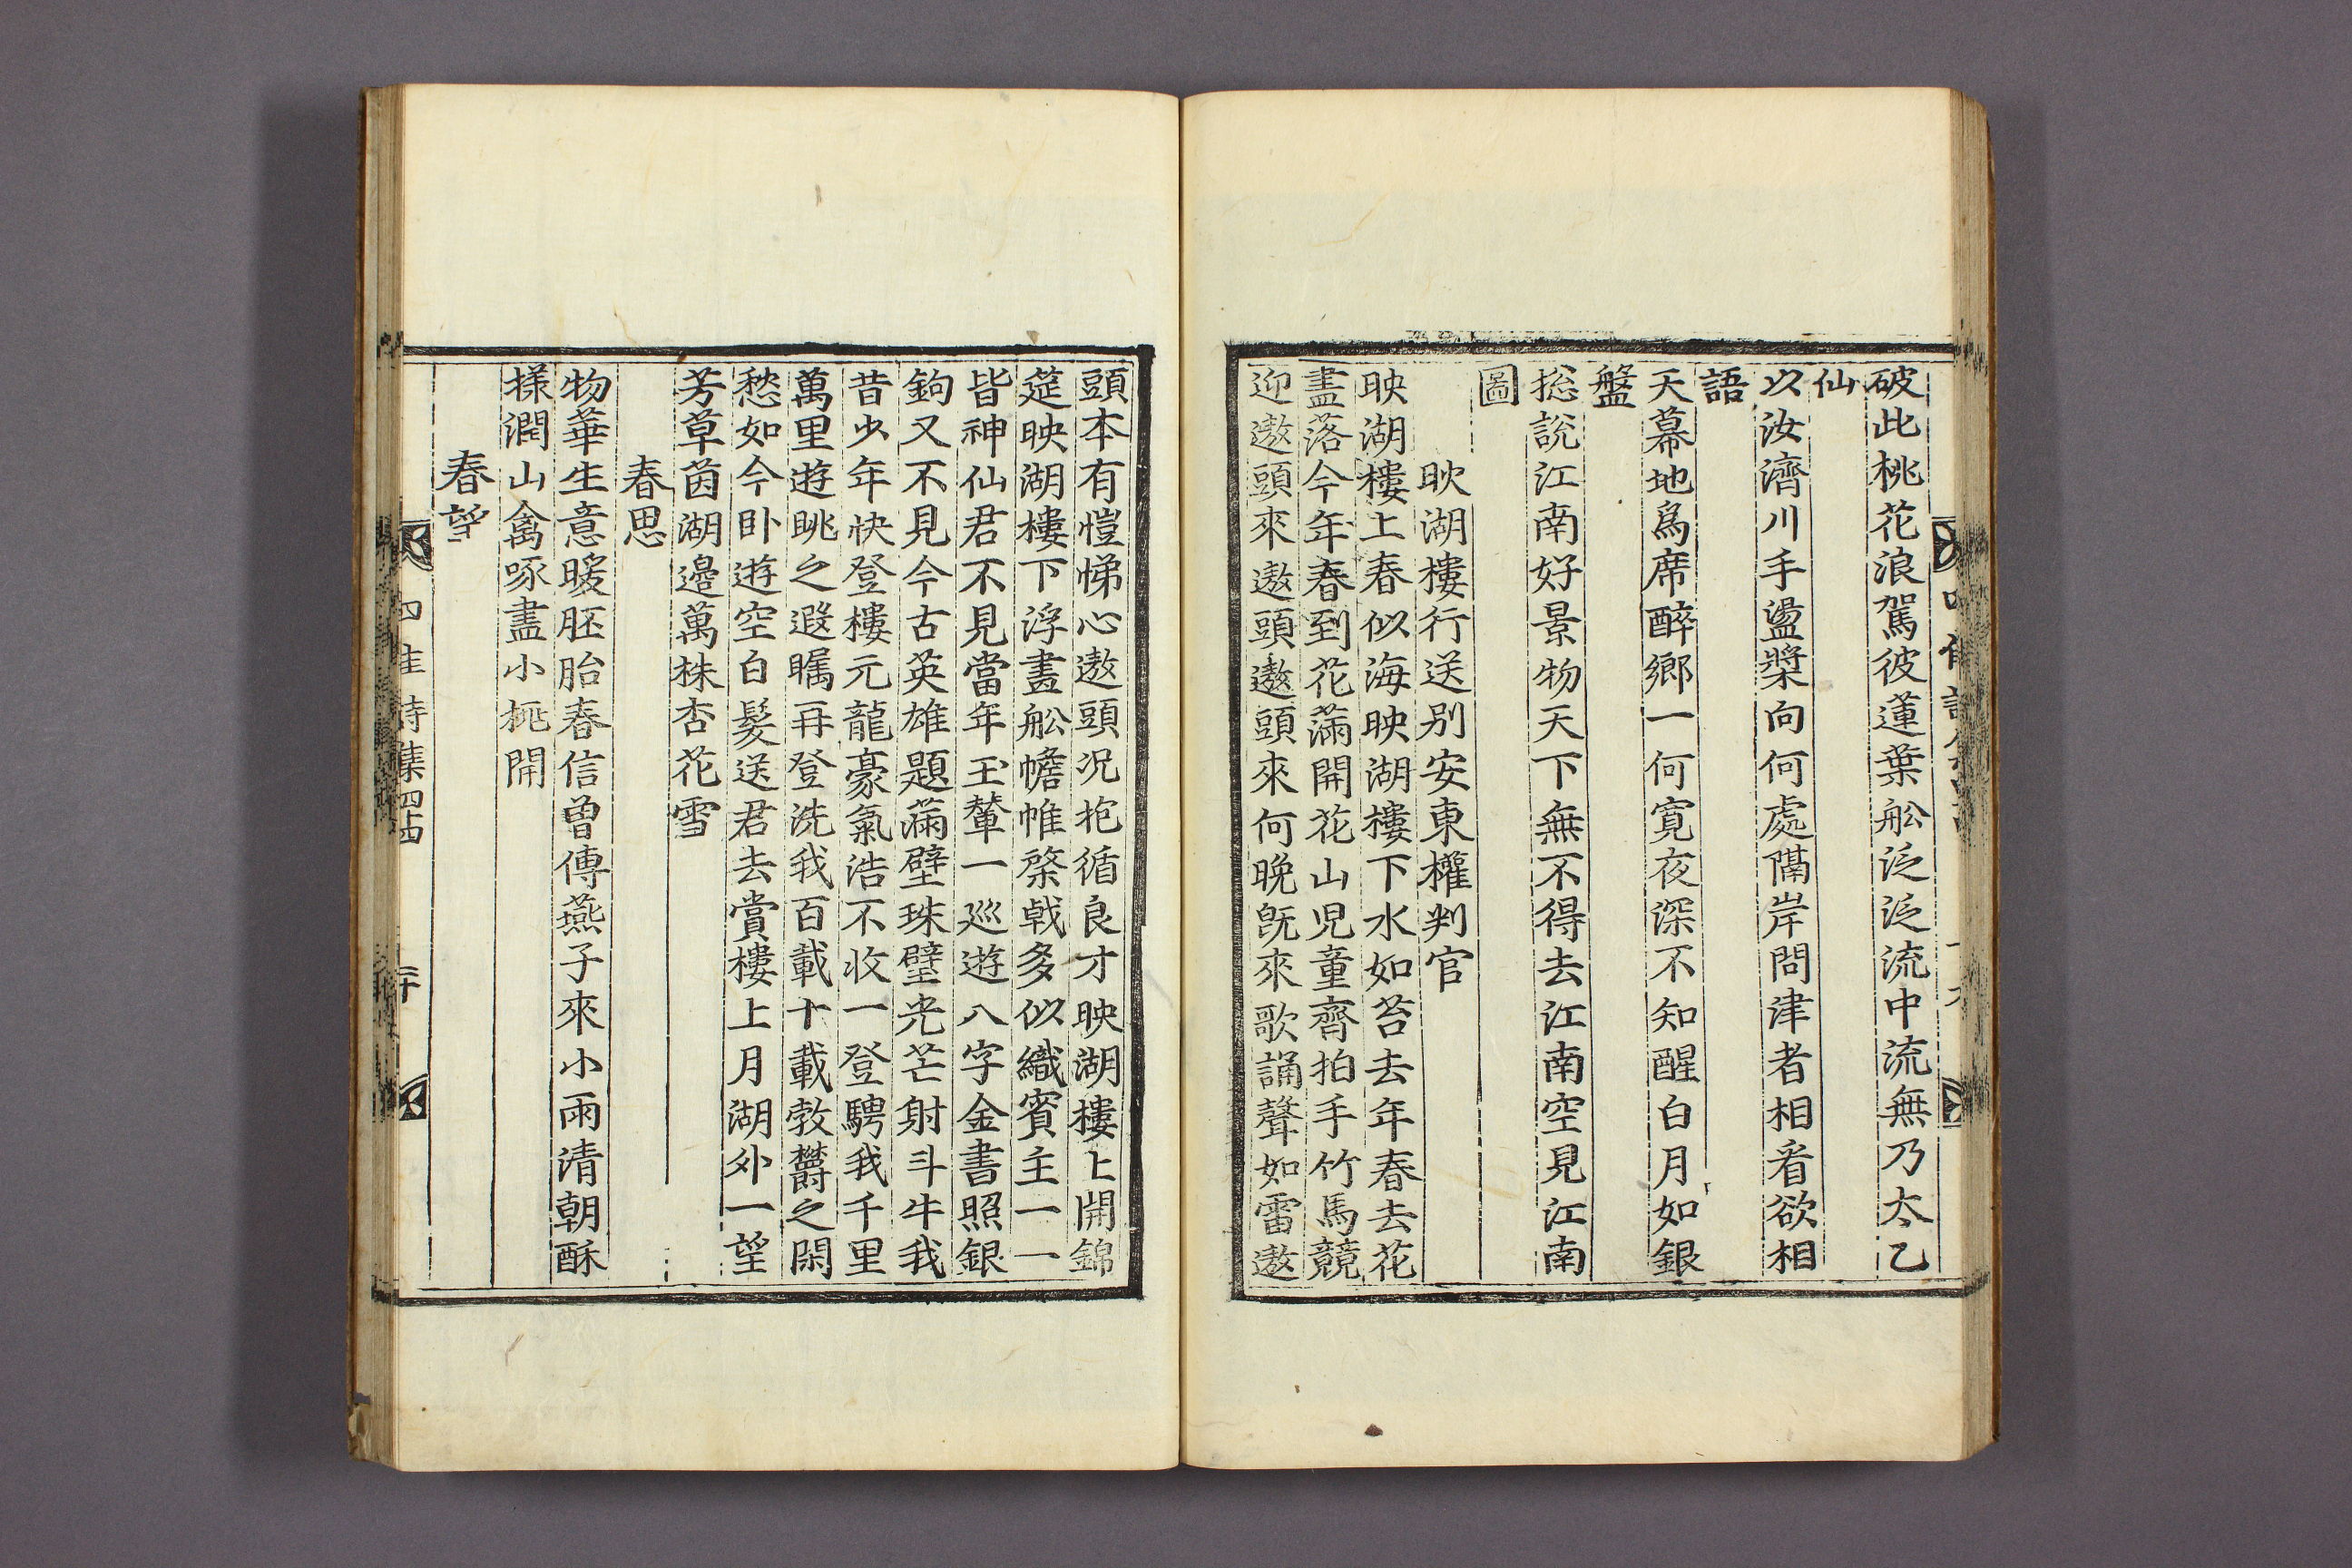 破此桃花浪駕彼蓮葉舩泛泛流中流無乃太乙
仙
以汝濟川手盪槳向何處隔岸問津者相看欲相
語
天幕地爲席醉鄉一何寬夜深不知醒白月如銀
盤
捴說江南好景物天下無不得去江南空見江南
圖
映湖樓行送别安東權判官
映湖樓上春似海映湖樓下水如苔去年春去花
盡落今年春到花滿開花山児童齊拍手竹馬競
迎遨頭來遨頭遨頭來何晩旣來歌誦聲如雷遨
頭本有愷悌心遨頭况抱循良才映湖樓上開錦
筵映湖樓下浮畫舩幨帷棨戟多似織賓主一一
皆神仙君不見當年玉輦一巡遊八字金書照銀
鉤又不見今古英雄題滿壁珠璧光芒射斗牛我
昔少年快登樓元龍豪氣浩不收一登騁我千里
萬里遊眺之遐矚再登洗我百載十載敎欝之閑
愁如今卧遊空白髮送君去賞樓上月湖外一望
芳草茵湖邊萬株杏花雪
春思
物華生意暖胚胎春信曾傳燕子來小雨清朝酥
㨾潤山禽啄盡小桃開
春望
四佳詩集四十四
二十